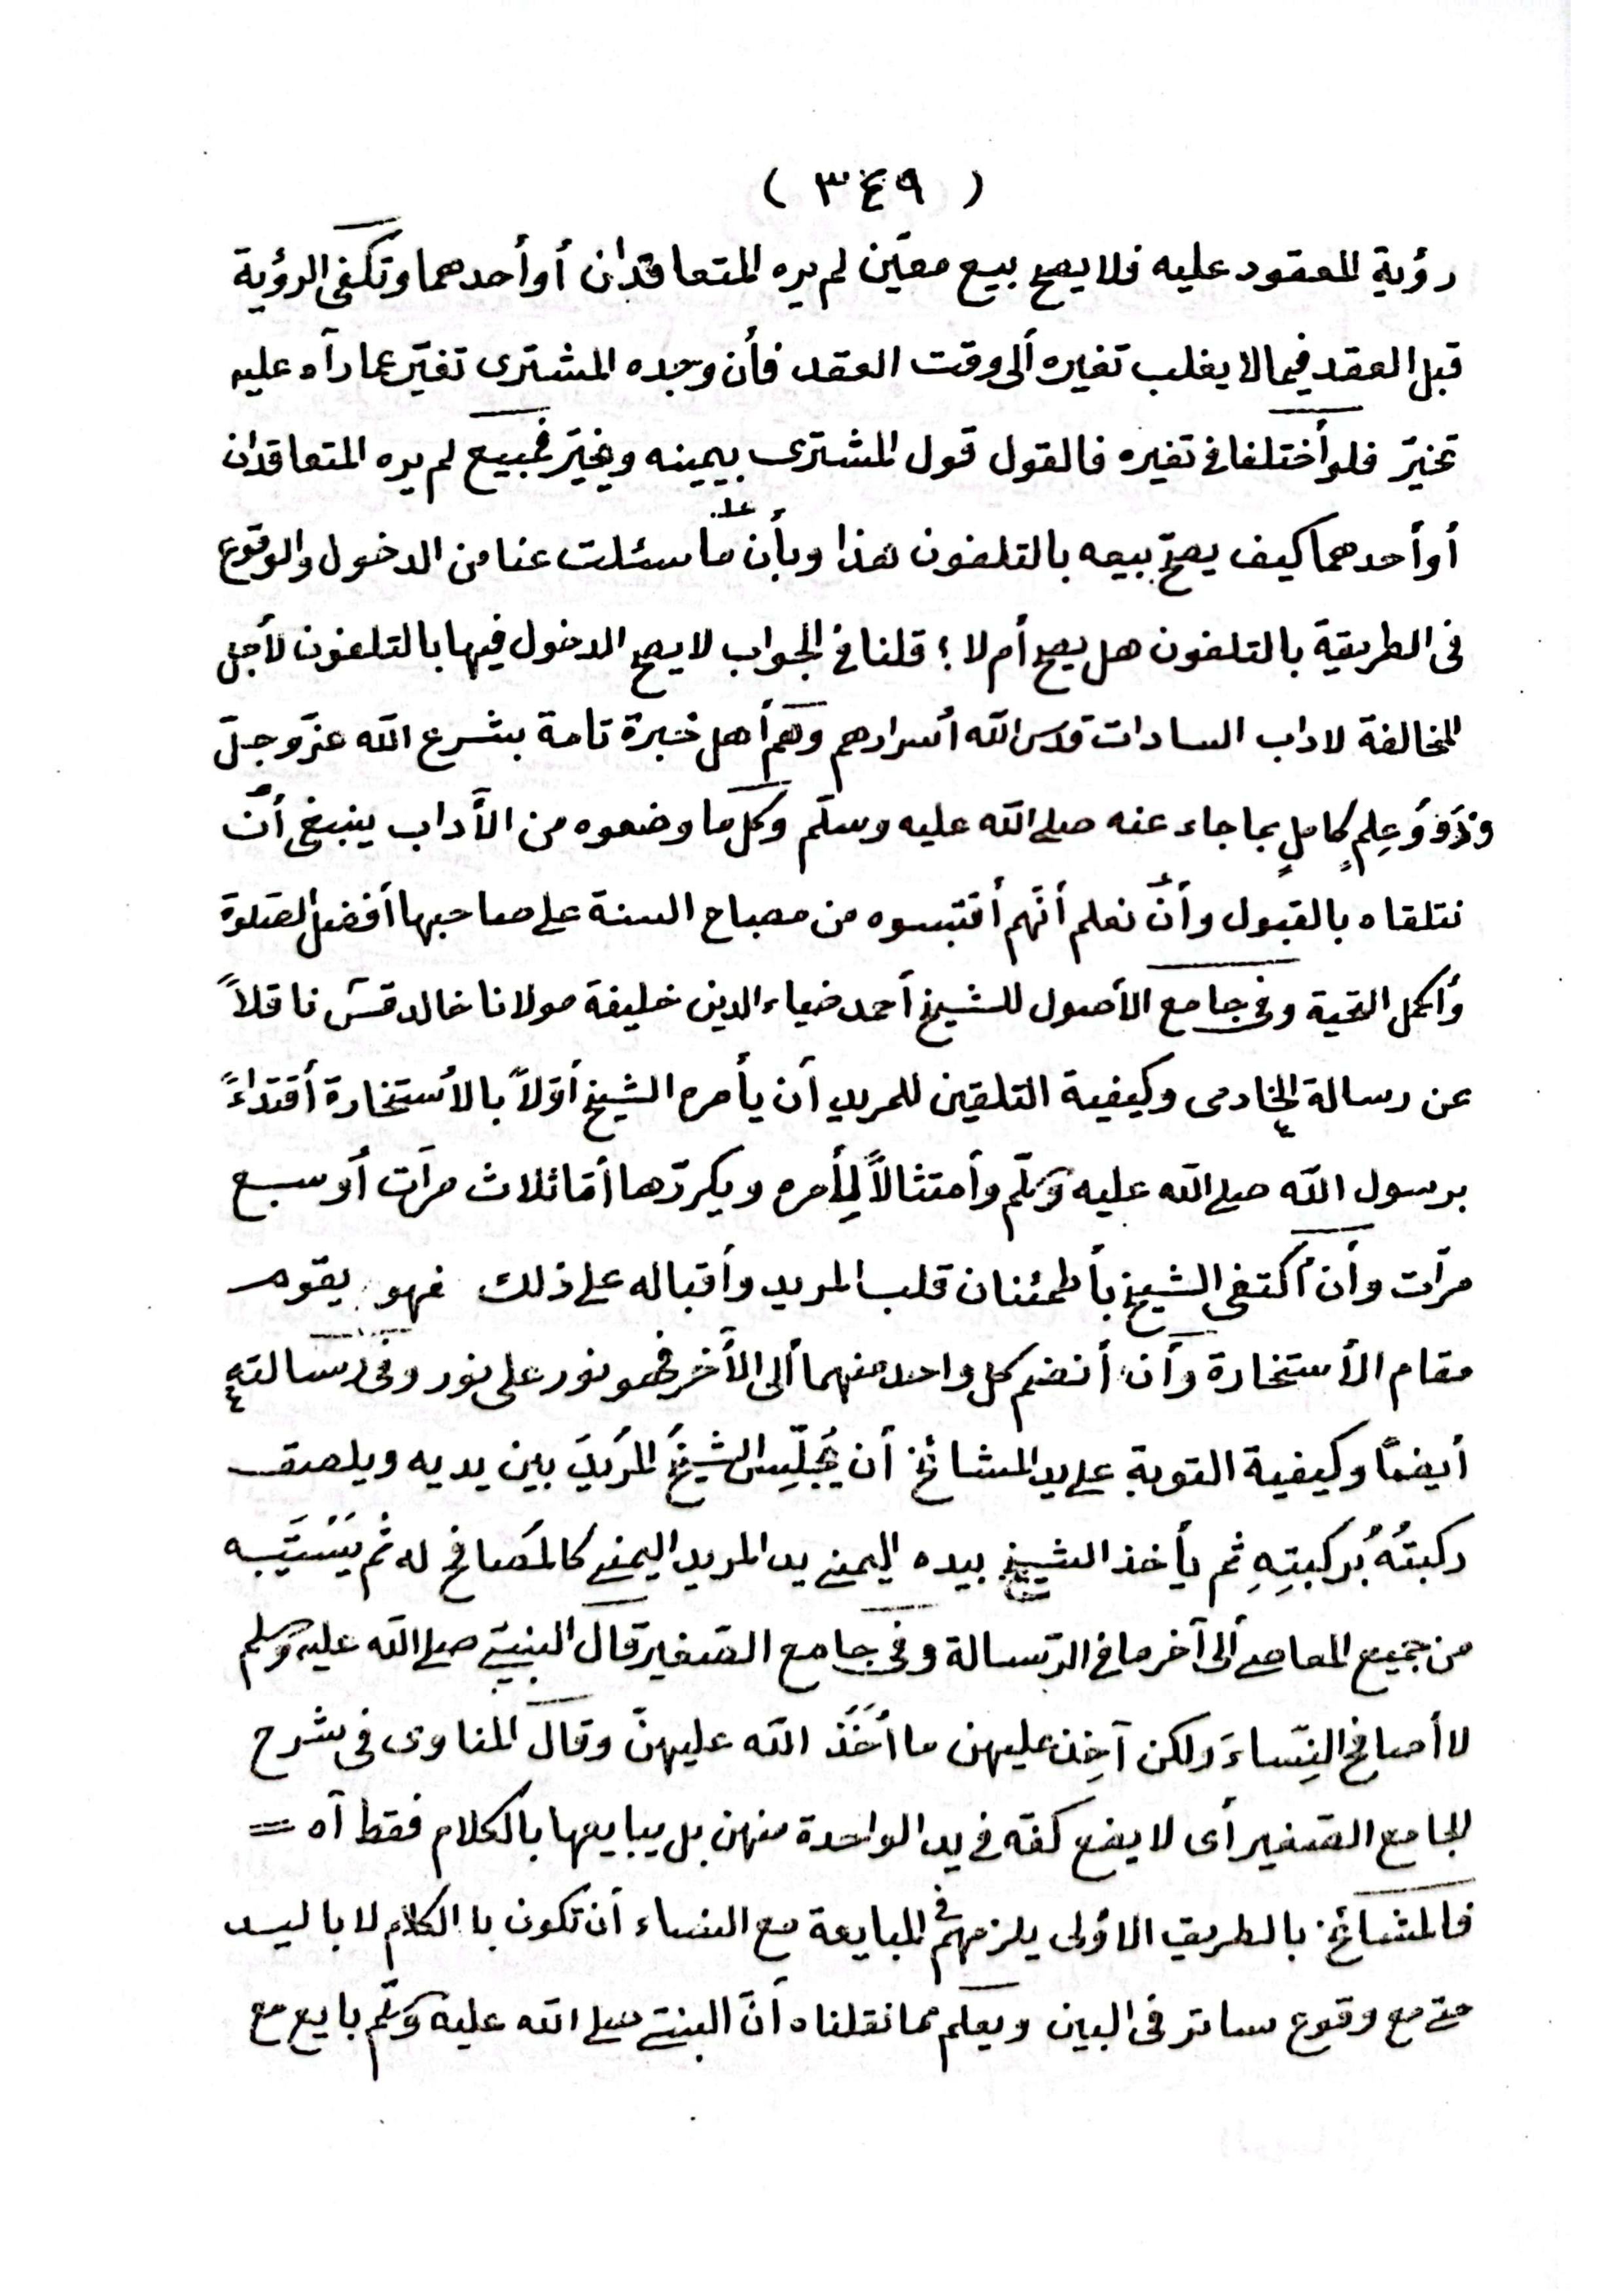 ( ٣٤٩ )
رؤية المعقود عليه فلا يصح بيع معيّن لم يره المتعاقدان أو أحدهما وتكفى الرؤية
قبل العقد فيما لا يغلب تغيره ألى وقت العقد فأن وجده المشترى تغيّر عما رآه عليه
تخيّر فلو أختلفا فى تغيره فالقول قول المشترى بيمينه ويخيّر فمبيع لم يره المتعاقدان
أو أحدهما كيف يصحّ بيعه بالتلفون هذا وبأن ما سئلت عنا من الدخول والوقوع
فى الطريقة بالتلفون هل يصح أم لا ؛ قلنا فى الجواب لا يصح الدخول فيها بالتلفون لأجل
المخالفة لاداب السادات قدس الله أسرارهم وهم أهل خبرة تامة بشرع الله عزّ وجلّ
وذَوُو عِلمٍ كاملٍ بما جاء عنه صلى الله عليه وسلّم وكل ما وضعوه من الأَداب ينبغى أنْ
نتلقاه بالقبول وأنْ نعلم أنّهم أقتبسوه من مصباح السنة على صاحبها أفضل الصّلوة
وأكمل التحية وفى جامع الأصول للشيخ أحمد ضياء الدين خليفة مولانا خالد قسّ ناقلاً
عن رسالة الخادمى وكيفية التلقين للمريد أن يأمره الشيخ أوّلاً بالأستخارة أقتداءً
برسول الله صلى الله عليه وسلّم وأمتثالاً لِأمره ويكرّرها أمّا ثلاث مرّات أو سبع
مرّات وأن أكتفى الشيخ بأطمئنان قلب المريد وأقباله على ذلك فهو يقوم
مقام الأستخارة وأن أنضم كل واحد منهما ألى الأَخر فهو نور على نور وفى رسالته
أيضًا وكيفية التوبة على يد المشائخ أن يُجلّسِ الشيخُ المريدَ بين يديه ويلصق
ركبتُهُ بُركبتِهِ ثم يأخذ الشيخ بيده اليمنى يد المريد اليمنى كالمصافح له ثم يَسْتَتِيبه
من جميع المعاصى ألى آخر ما فى الرّسالة وفى جامع الصّغير قال النبيّ صلى الله عليه وسلم
لا أصافح النِسّاءَ ولكن آخِذ عليهن ما أَخَذَ الله عليهنّ وقال المناوى فى شرح
الجامع الصّغير أى لا يضع كفّه فى يد الواحدة منهن بل يبايعها بالكلام فقط آه =
فالمشائخ بالطريق الاوُلى يلزمهم فى المبايعة مع النساء أن تكون با الكلام لا باليد
حتى مع وقوع ساتر فى البين ويعلم مما نقلناه أنّ النبىّ صلى الله عليه وسلّم بايع مع